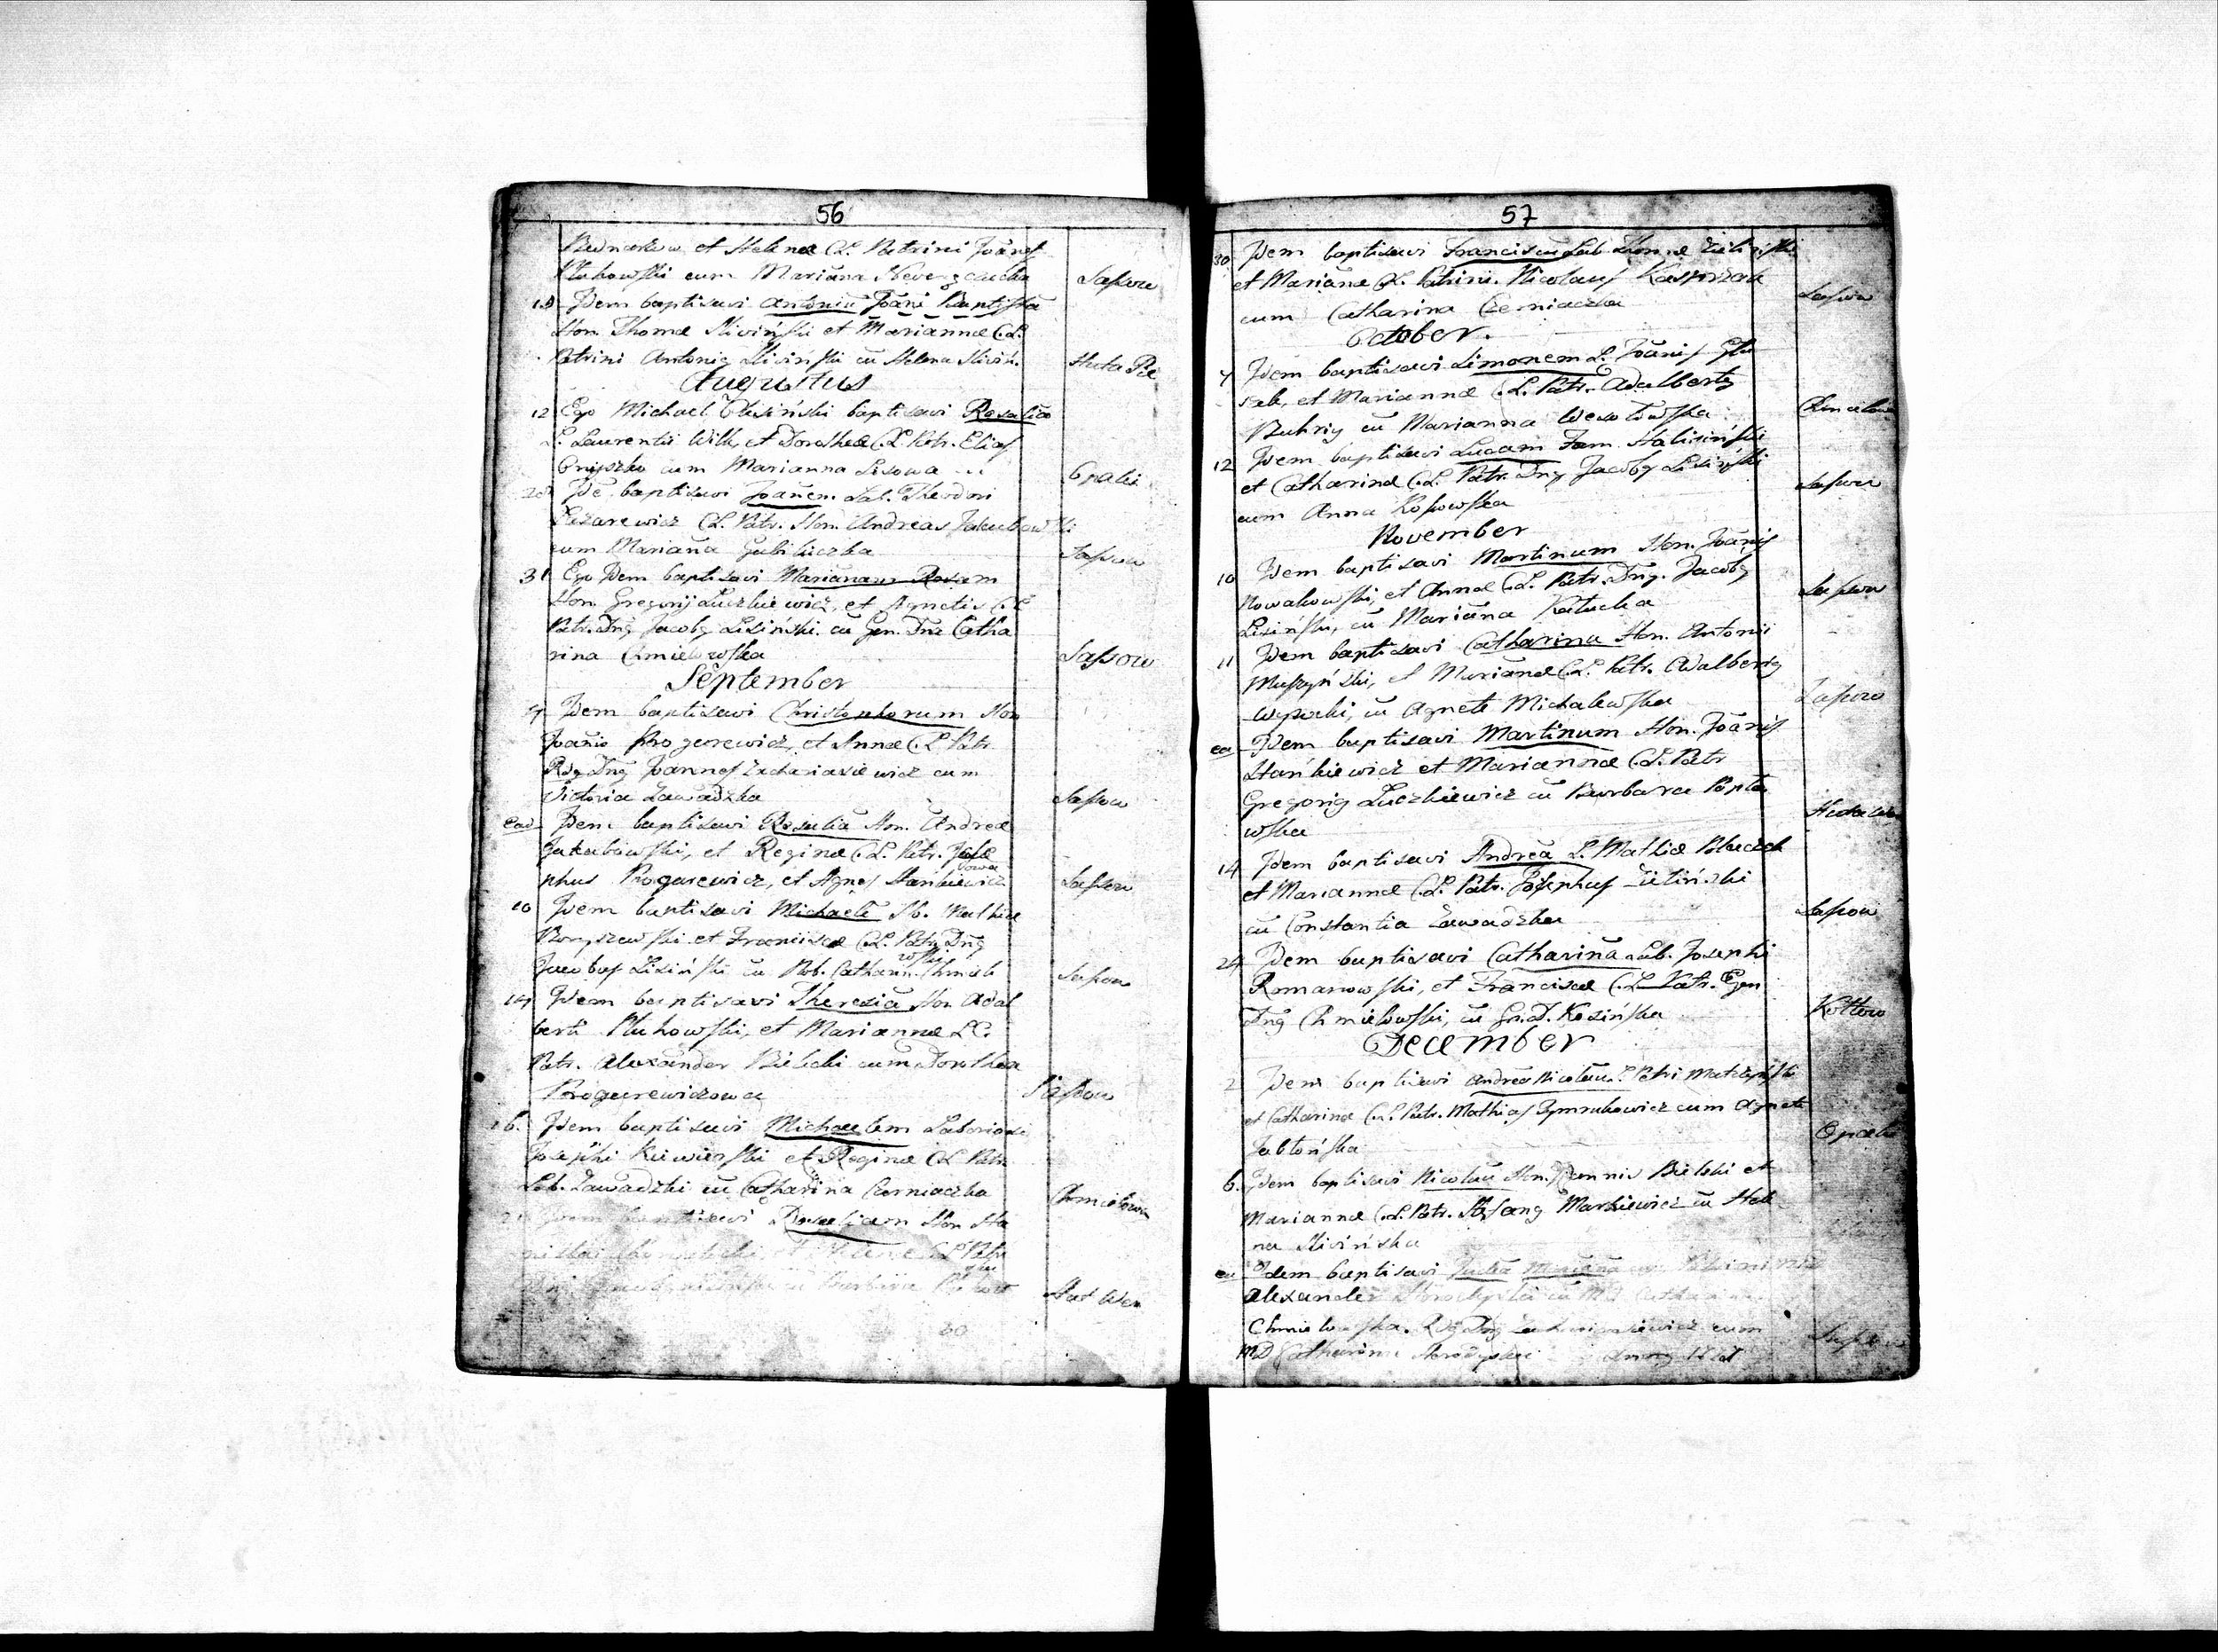 56
Bednarków et Helenæ C.L. Patrini Joānes
Klukowski cum Mariāna
Sassow
Idem baptisavi Antoniū Joāni Baptistā
Hon. Thomæ Sliwiński et Mariannæ C.L.
Patrini Antonig Sliwiński cū Helena Sliwiń.
Huta Pie
Augustus
12 Ego Michael baptisavi Rosaliā
L. Laurentii Wilk, et Dorotheæ C.L. Patr. Elias
Onyszko cum Marianna Lisowa
Opaki
Idē baptisavi Joānem Lab. Theodori
Lazarewicz C.L. Patr. Hon. Andreas Jakubowski
cum Mariāna
Sassow
31 Ego Idem baptisavi Mariānam Rosam
Hon. Gregorij Luczkiewicz, et Agnetis C.L.
Patr. Dng Jacobg Lisiński cū Gen. Dna Catha
rina Chmielowska
Sassow
September
Idem baptisavi Christophorum Hon
Joānis Progarewicz, et Annæ C.L. Patr.
Rdg Dng Joannes Zachariasiewicz cum
Victoria Zawadzka
Sassow
Ead Idem baptisavi Rosaliā Hon. Andreæ
Jakubowski, et Reginæ C.L. Patr. Jose
phus Progarewicz, et Agnes Stankiewicz
owa
Sassow
10 Idem baptisavi Michaelē Nb. Mathiæ
Boryszewski et Franciscæ C.L. Patr. Dng
Jacobus Lisiński cū Nob. Catharin. Chmiel
owska
Sassow
14 Idem baptisavi Theresiā Hon Adal
berti Klukowski, et Mariannæ L.C.
Patr. Alexānder Bielecki cum Dorothea
Progarewiczowa
Sassow
16. Idem baptisavi Michaelem Laboriosi
Josephi et Reginæ C.L. Patr.
Lab. Zawadzki cū Catharina Czerniaczka
Chmielowa
Idem baptisavi Rosaliam Hon Sta
C.L. Patr.
Barbara
Hut Wer
57
30 Idem baptisavi Franciscū Lab. Thomæ Zieliński
et Mariānæ C.L. Patrini. Nicolaus Kasprzak
cum Catharina Czerniaczka
Sassow
October.
7 Idem baptisavi Simonem L. Joānis Glu
szek, et Mariannæ C.L. Patr. Adalbertg
Kuhrig cū Marianna Wesołowska
Chmielowa
12 Idem baptisavi Lucam Fam. Halisiński
et Catharinæ C.L. Patr. Dng Jacobg Lisiński
cum Anna Kossowska
Sassow
November
10 Idem baptisavi Martinum Hon. Joānis
Nowakowski, et Annæ C.L. Patr. Dng. Jacobg
Lisiński, cū Mariāna
Sassow
11 Idem baptisavi Catharinā Hon. Antonii
Muszyński, et Mariānæ C.L. Patr. Adalbertg
cū Agnete Michalewska
Sassow
ea Idem baptisavi Martinum Hon. Joānis
Stańkiewicz et Mariannæ C.L. Patr
Gregorig Luczkiewicz cū Barbara Popła
wska
Huta Wer
14 Idem baptisavi Andreā L. Mathiæ
et Mariannæ C.L. Patr. Josephus Zieliński
cū Constantia Zawadzka
Sassow
24 Idem baptisavi Catharinā Lab. Josephi
Romanowski, et Franciscæ C.L. Patr. Gen
Dng Chmielowski, cū Gn. D. Kosińska
Kołtow
December
2 Idem baptisavi Andreā Nicolaū L. Petri
et Catharinæ C.L. Patr. Mathias Szymankowicz cum Agnete
Jabłońska
Opaki
6. Idem baptisavi Nicolaū Hon. Joannis Bielski et
Mariannæ C.L. Patr. Markiewicz cū Hele
na Sliwińska
ea Idem baptisavi Mariānā
Alexander
Chmielowska. Rdg Dng Zachariasiewicz cum
MD Catharina
Sassow